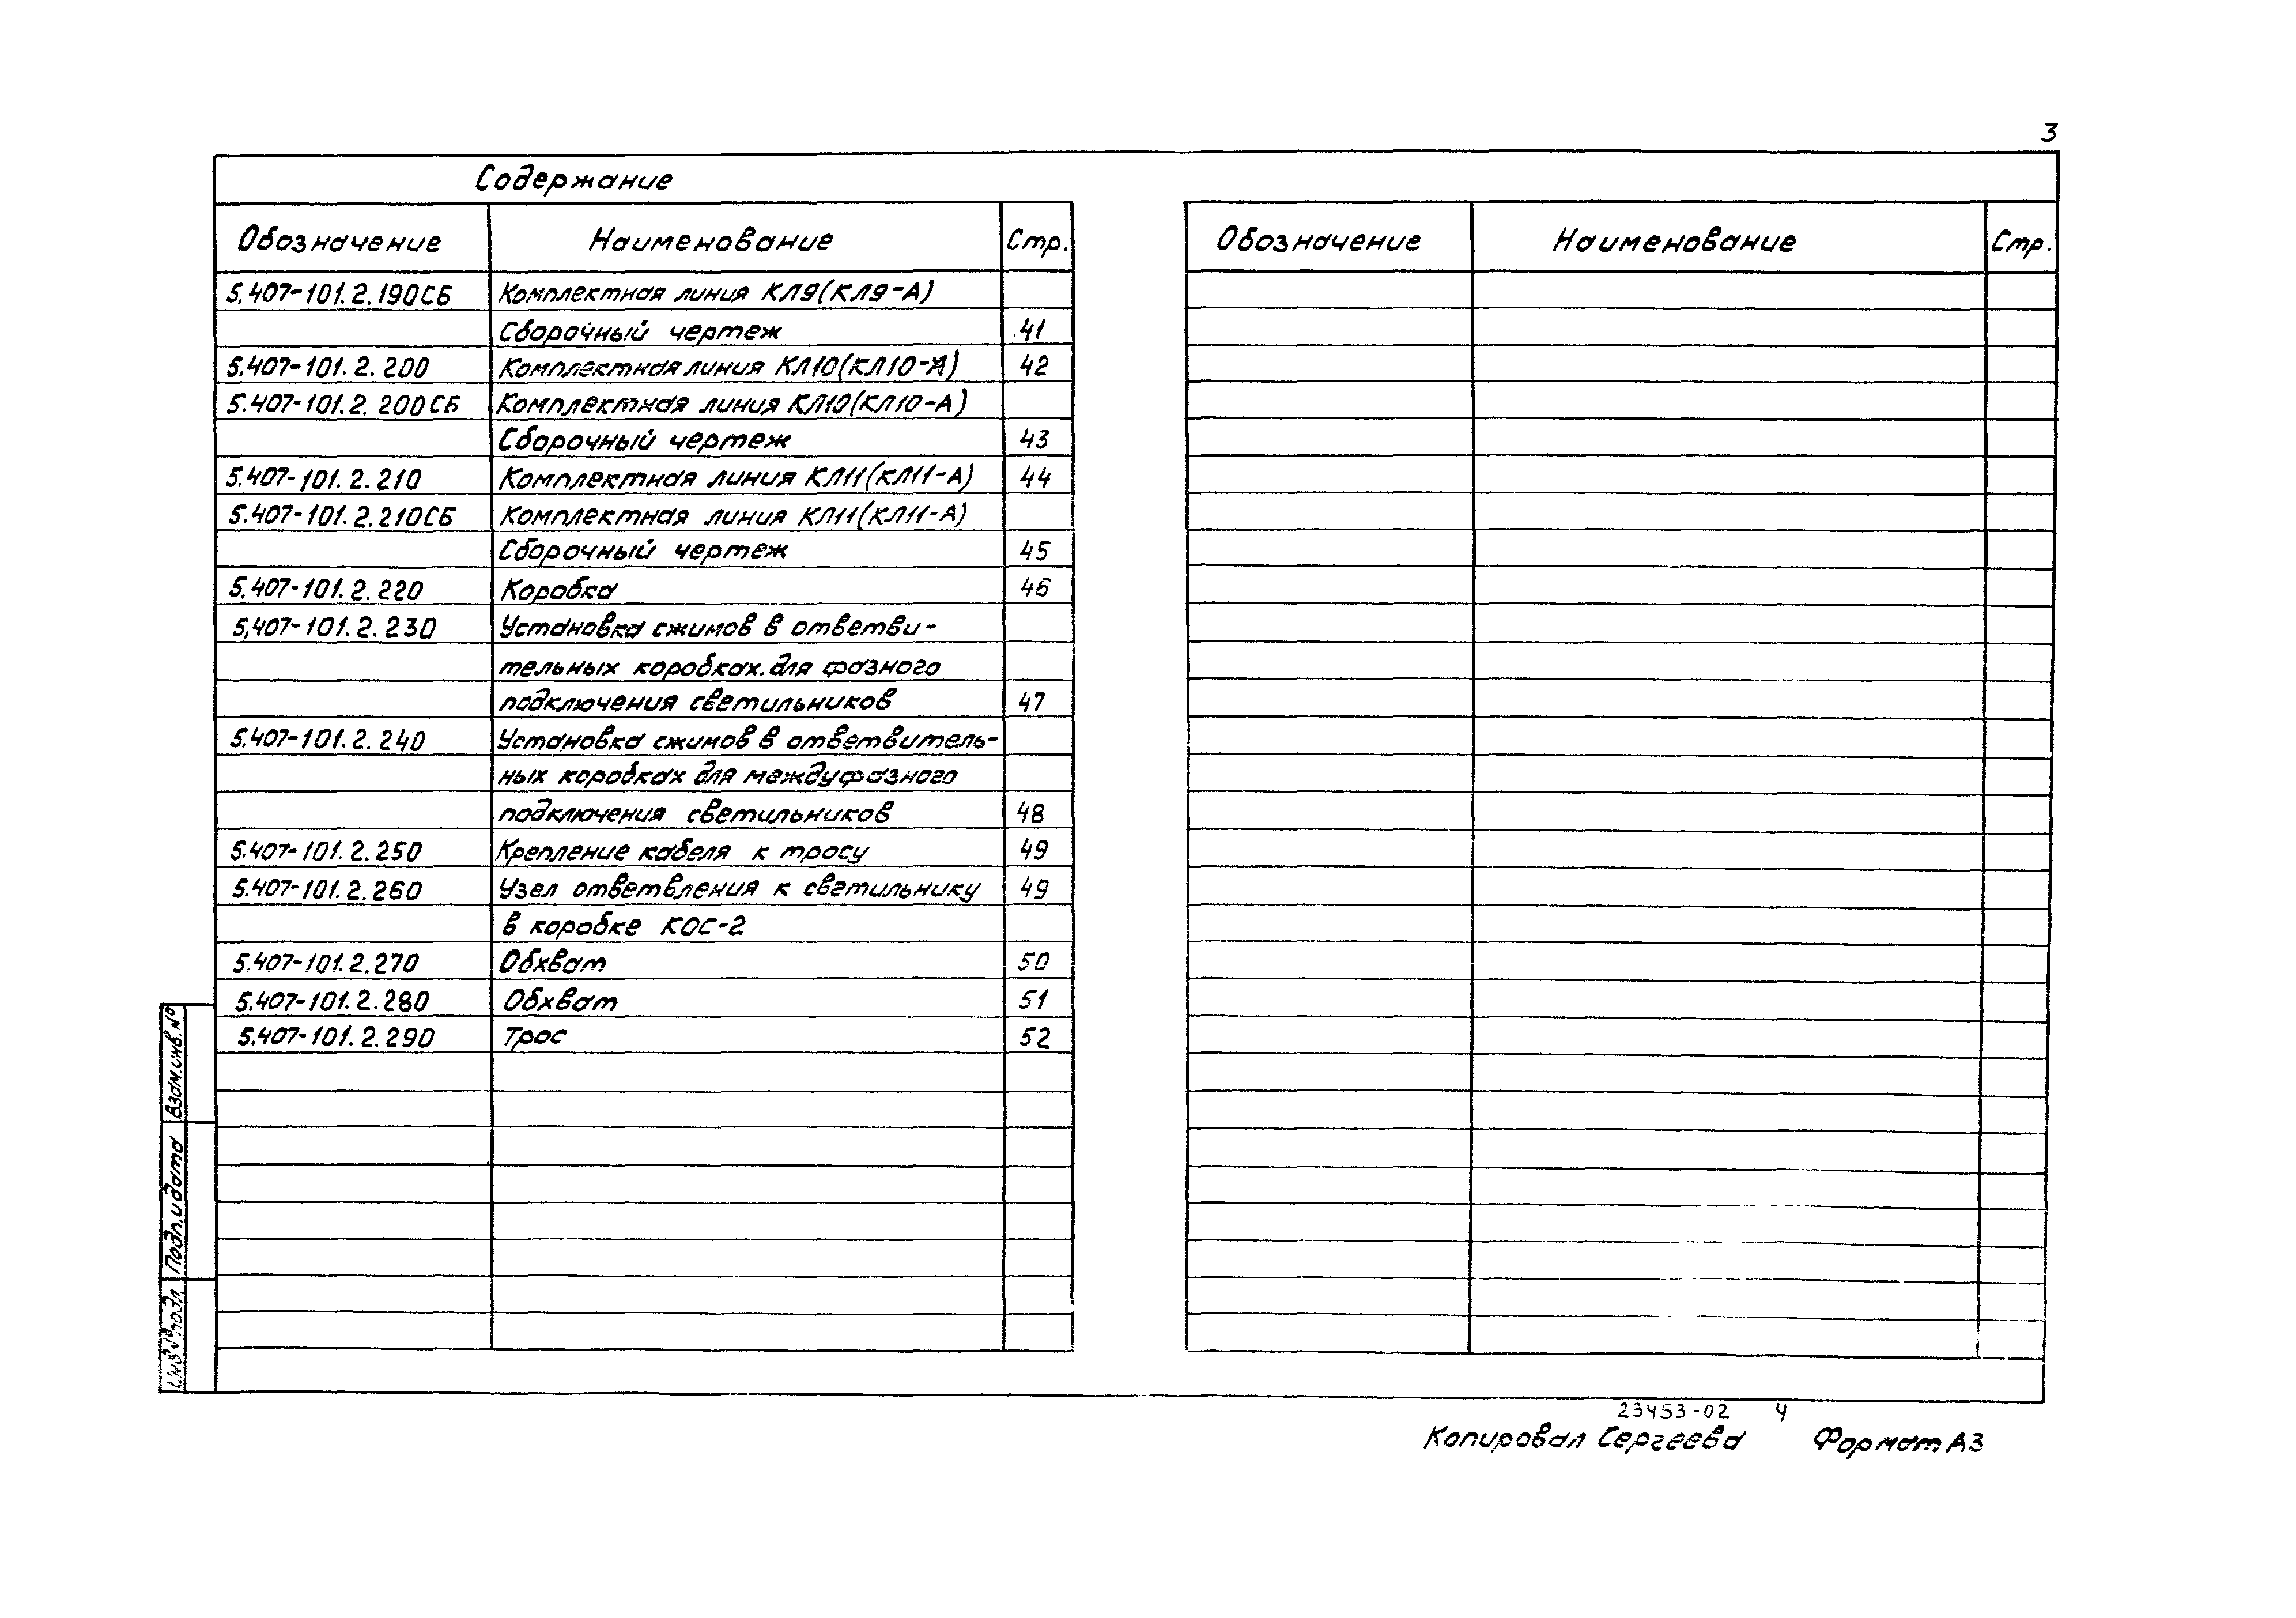 3
Содержание
Обозначение Наименование Стр.
5.407-101.2.190СБ Комплектная линия КЛ9(КЛ9-А)
Сборочный чертеж 41
5.407-101.2.200 Комплектная линия КЛ10(КЛ10-А) 42
5.407-101.2.200СБ Комплектная линия КЛ10(КЛ10-А)
Сборочный чертеж 43
5.407-101.2.210 Комплектная линия КЛ11(КЛ11-А) 44
5.407-101.2.210СБ Комплектная линия КЛ11(КЛ11-А)
Сборочный чертеж 45
5.407-101.2.220 Коробка 46
5.407-101.2.230 Установка сжимов в ответви-
тельных коробках для фазного
подключения светильников 47
5.407-101.2.240 Установка сжимов в ответвитель-
ных коробках для междуфазного
подключения светильников 48
5.407-101.2.250 Крепление кабеля к тросу 49
5.407-101.2.260 Узел ответвления к светильнику 49
в коробке КОС-2
5.407-101.2.270 Обхват 50
5.407-101.2.280 Обхват 51
5.407-101.2.290 Трос 52
Обозначение Наименование Стр.
Взам.инв.№
Подп.и дата
Инв.№ подл.
23453-02 4
Копировал Сергеева Формат А3